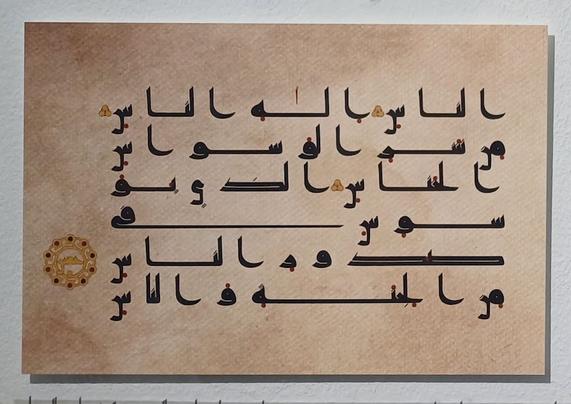 الناس اله الناس
من شر الوسواس
الخناس الذي يو
سوس في
صدور الناس
من الجنة والناس